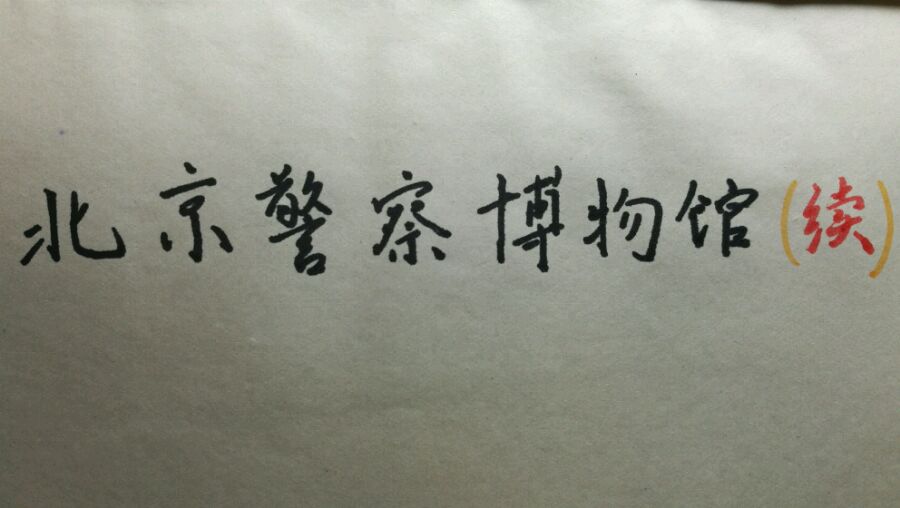 北京警察博物馆(续)